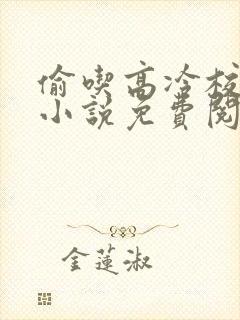 偷喫高冷校
小説免費閱
金蓮淑